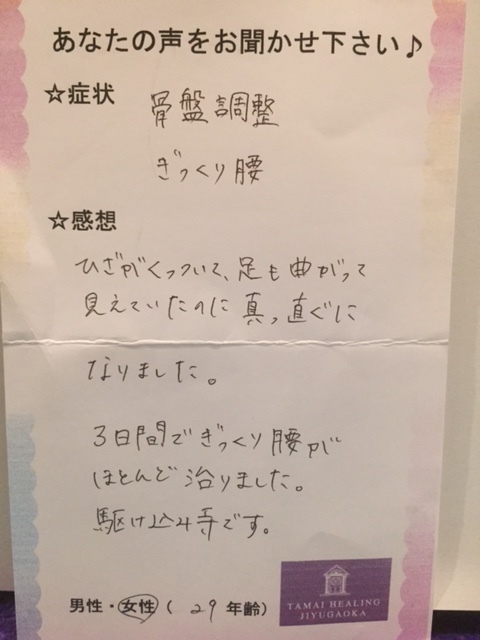 あなたの声をお聞かせ下さい♪
☆症状 骨盤調整
ぎっくり腰
☆感想
ひざがくっついて、足も曲がって
見えていたのに真っ直ぐに
なりました。
3日間でぎっくり腰が
ほとんど治りました。
駆け込み寺です。
男性・女性 ( 29 年齢)
TAMAI HEALING
JIYUGAOKA